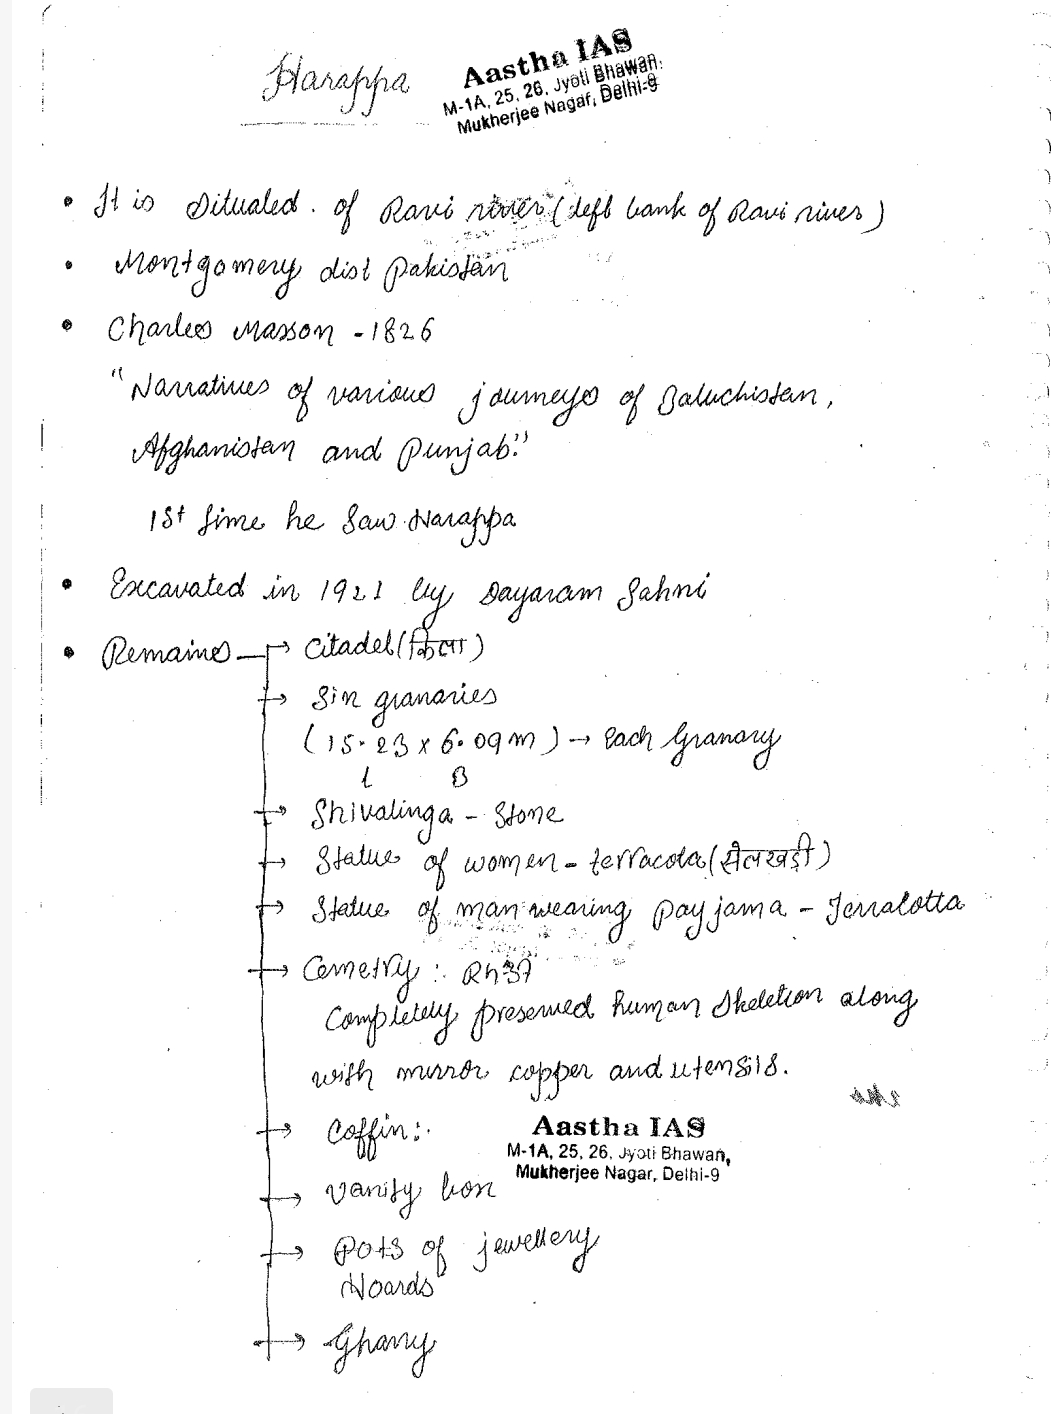 Harappa
Aastha IAS
M-1A, 25, 26, Jyoti Bhawan,
Mukherjee Nagar, Delhi-9
• It is situated. of Ravi river (left bank of Ravi river)
• Montgomery dist Pakistan
• Charles Masson - 1826
"Narratives of various journeys of Baluchistan,
Afghanistan and Punjab."
1st time he saw Harappa
• Excavated in 1921 by Dayaram Sahni
• Remains → Citadel (किला)
→ Six granaries
(15.23 x 6.09m) → Each Granary
L B
→ Shivalinga - Stone
→ Statue of women - terracota (सेलखड़ी)
→ Statue of man wearing payjama - Terralotta
→ Cemetry: Rh37
Completely preserved human skeletion along
with mirror copper and utensils.
→ Coffin:
Aastha IAS
M-1A, 25, 26, Jyoti Bhawan,
Mukherjee Nagar, Delhi-9
→ Vanity box
→ Pots of jewellery
Hoards
→ Gharry